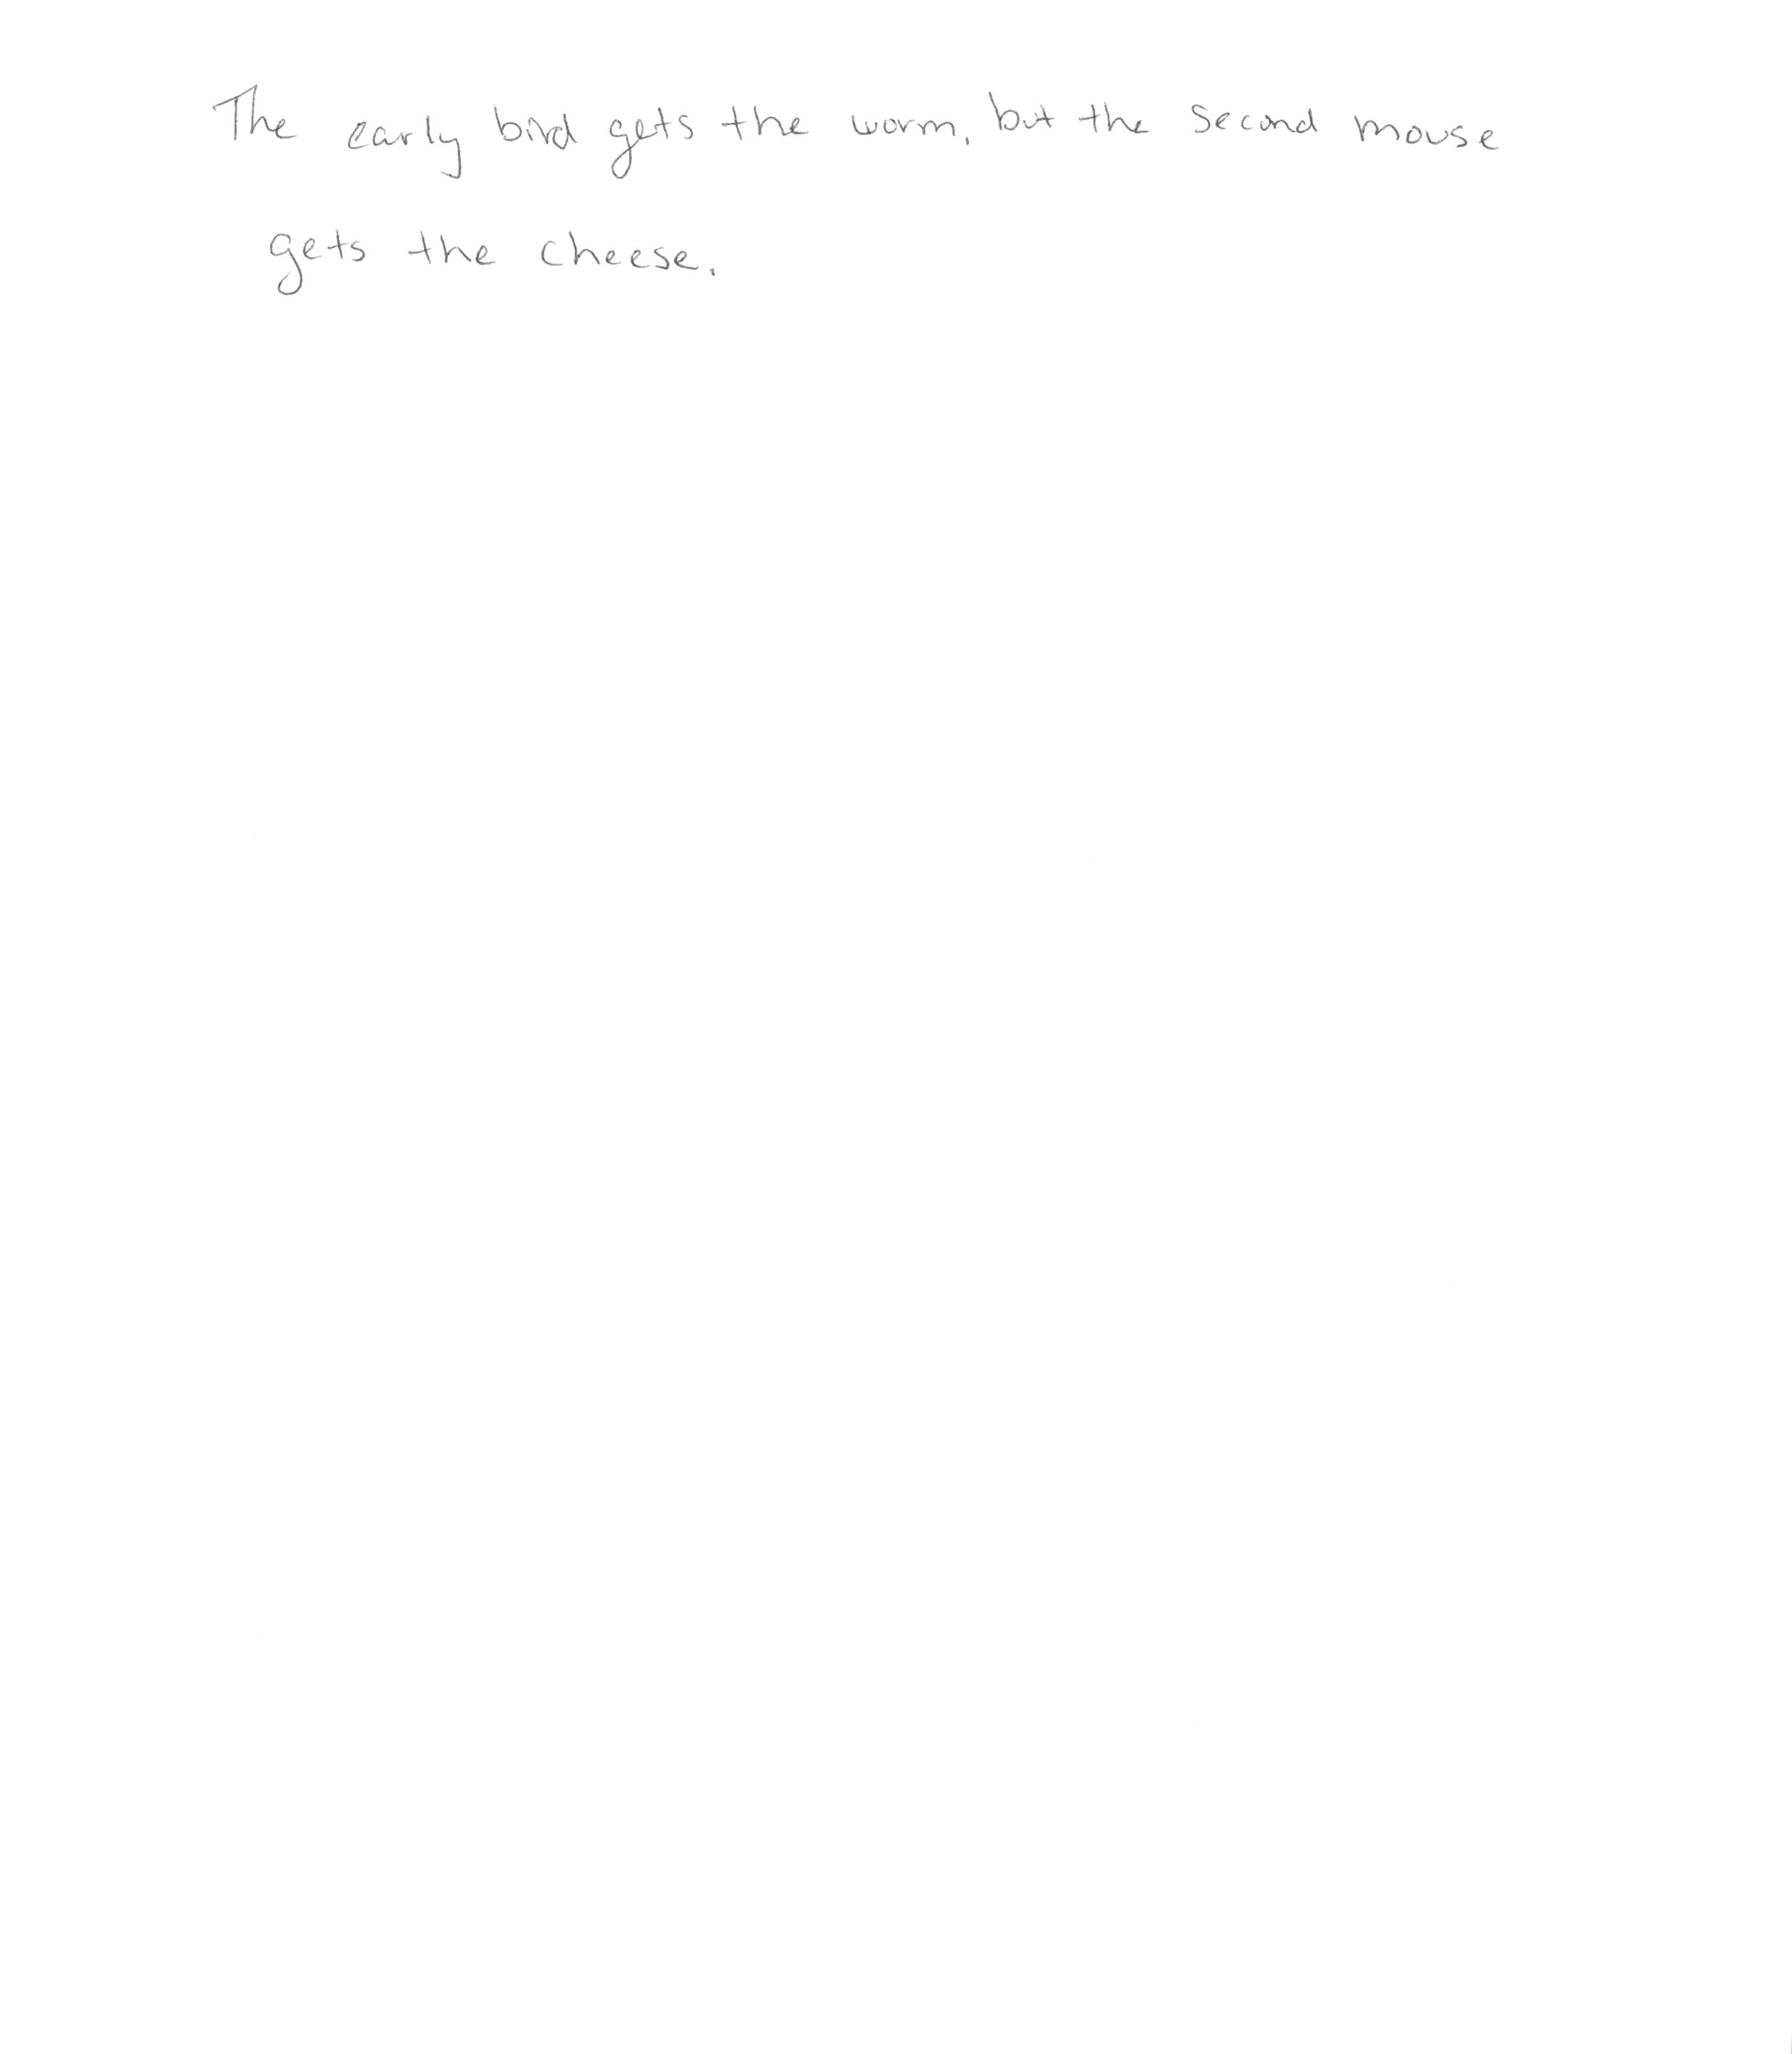 The early bird gets the worm, but the second mouse
gets the cheese.